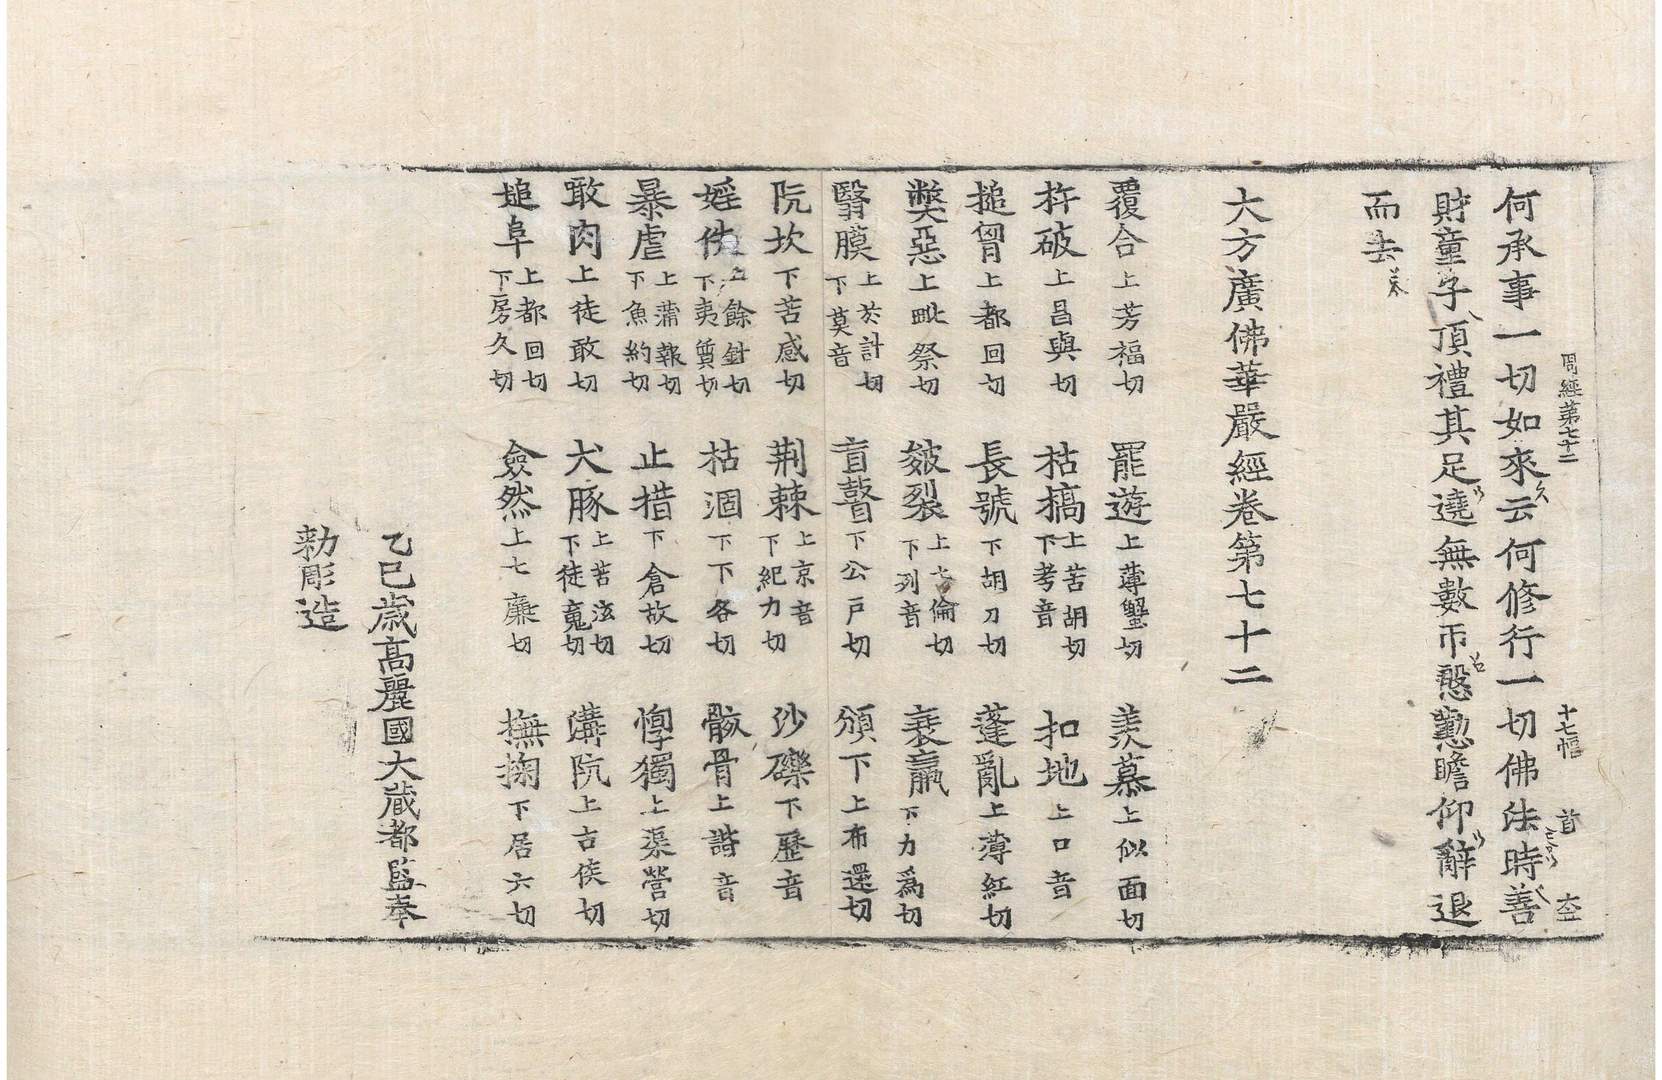 周經第七十二 十七幅 首
何承事一切如來云何修行一切佛法時善
財童子頂禮其足遶無數帀慇懃瞻仰辭退
而去
大方廣佛華嚴經卷第七十二
覆合上芳福切 罷遊上薄蟹切 羨慕上似面切
杵破上昌與切 枯槁上苦胡切下考音 扣地上口音
搥胷上都回切 長號下胡刀切 蓬亂上薄紅切
獘惡上毗祭切 皴裂上七倫切下列音 衰羸下力爲切
瞖膜上於計切下莫音 盲瞽下公戶切 頒下上布還切
阬坎下苦感切 荆棘上京音下紀力切 沙礫下歷音
婬佚上餘針切下夷質切 枯涸下下各切 骸骨上諧音
暴虐上蒲報切下魚約切 止措下倉故切 惸獨上渠營切
噉肉上徒敢切 犬豚上苦泫切下徒䰟切 溝阬上古侯切
塠阜上都回切下房久切 僉然上七廉切 撫掬下居六切
乙巳歳高麗國大藏都監奉
勅彫造